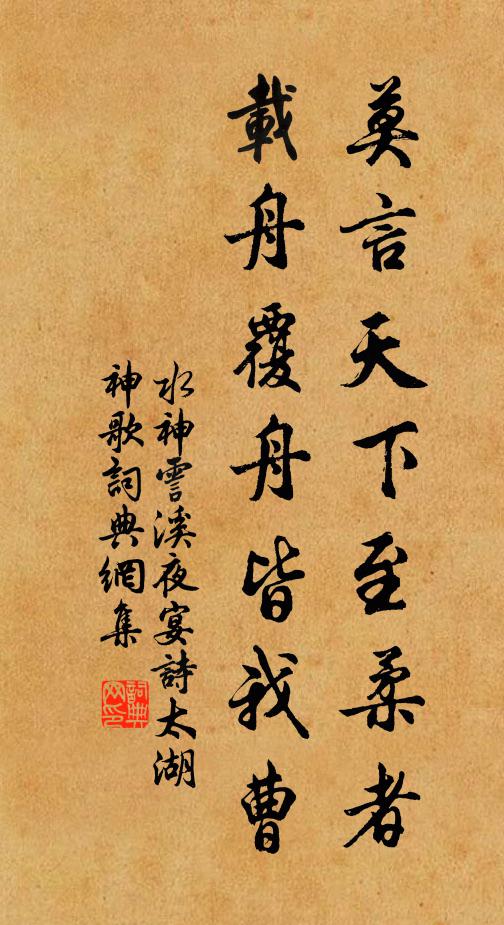 莫言天下至柔者
載舟覆舟皆我曹
水神霅溪夜宴詩太湖
神歌詞典網集
詞典
网印